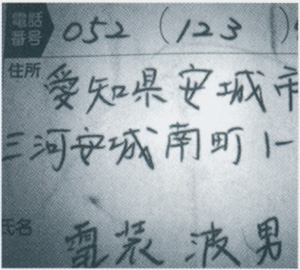 電話番号 052 (123)
住所 愛知県安城市
三河安城南町1-
氏名 電装 波男